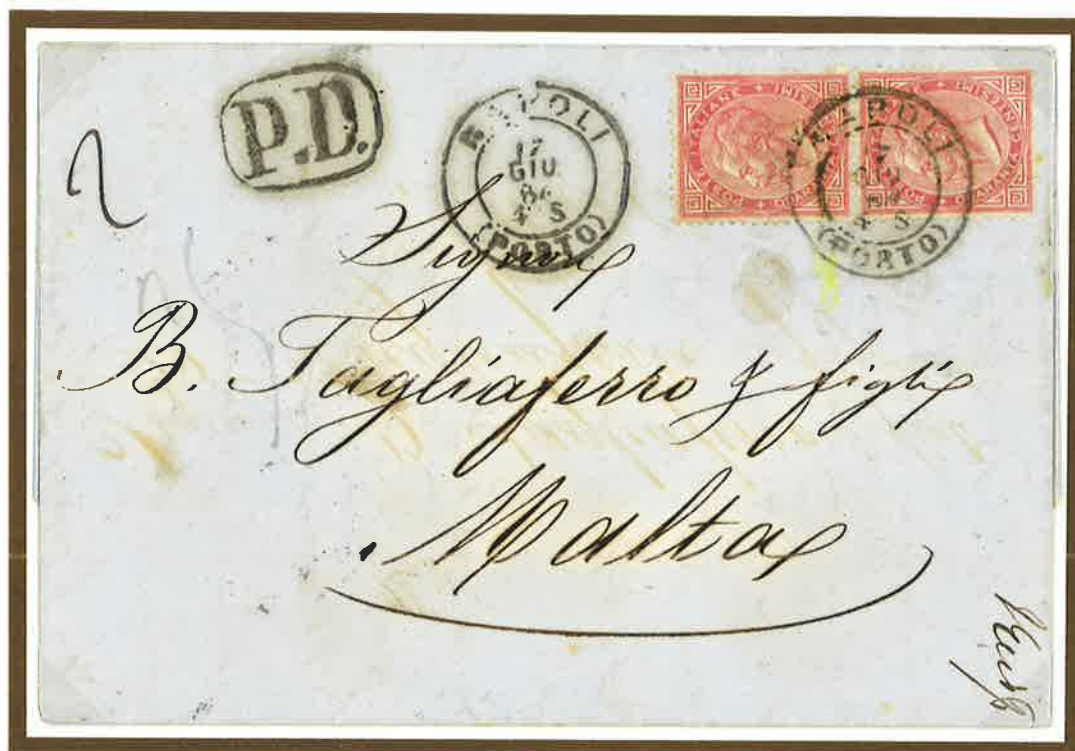 P.D.
NAPOLI
17
GIU
4 S
(PORTO)
NAPOLI
4 S
(PORTO)
2
Signori
B. Tagliaferro & figli
Malta